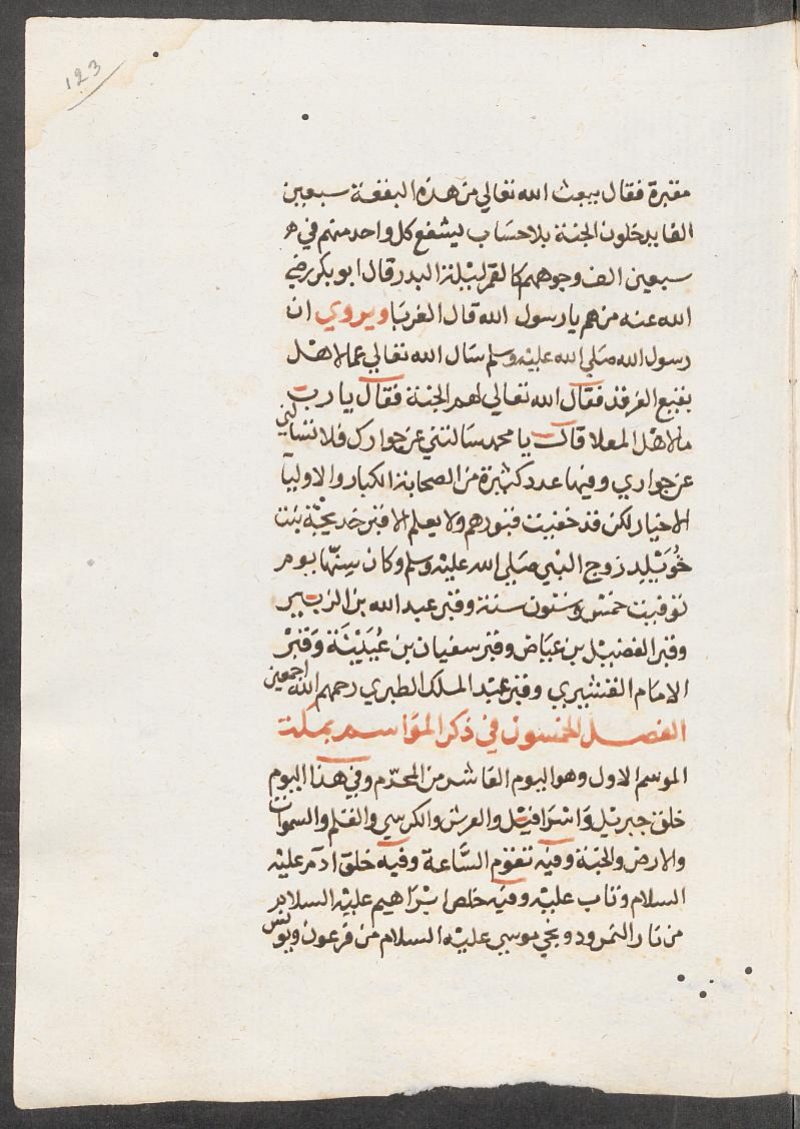 123
مقبرة فقال يبعث الله تعالي من هذه البقعة سبعين
الفا يدخلون الجنة بلا حساب ليشفع كل واحد منهم في
سبعين الف وجوههم كالقمر ليلة البدر قال ابو بكر رضي
الله عنه من هم يا رسول الله قال الغربا ويروي ان
رسول الله صلي الله عليه وسلم سال الله تعالي عما لاهل
بقيع الغرقد فقال الله تعالي لهم الجنة فقال يا رب
ما لاهل المعلا قال يا محمد سالتني عن جوارك فلا تسالني
عن جواري وفيها عدد كثيرة من الصحابة الكبار والاوليا
الاخيار لكن قد خفيت قبورهم ولا يعلم الا قبر خديجة بنت
خُوَيْلِد زوج النبي صَلي الله عليه وسلم وكان سِنّها يوم
توفيت خمس وستون سنة وقبر عبد الله بن الزبير
وقبر الفضيل بن عيَاض وقبر سفيان بن عُيَيْنَة وَقبْر
الامام القشيري وقبر عبْد الملك الطبري رحمهم الله اجمعين
الفصل الخمسون في ذكر المواسم بمكة
الموسم الاول وهو اليوم العَاشر من المحرّم وفي هذا اليوم
خلق جبريل وَاسْرَافيْل والعرش والكرسي والقلم والسموات
والارض والجنة وفيْه تقوم السَّاعة وفيه خلق ادم عليْه
السلام وتاب عليْه وفيَه خلص ابْرَاهيم عليْه السلام
من نار النمرود ونجي موسي عليْه السلام من فرعون ويونس